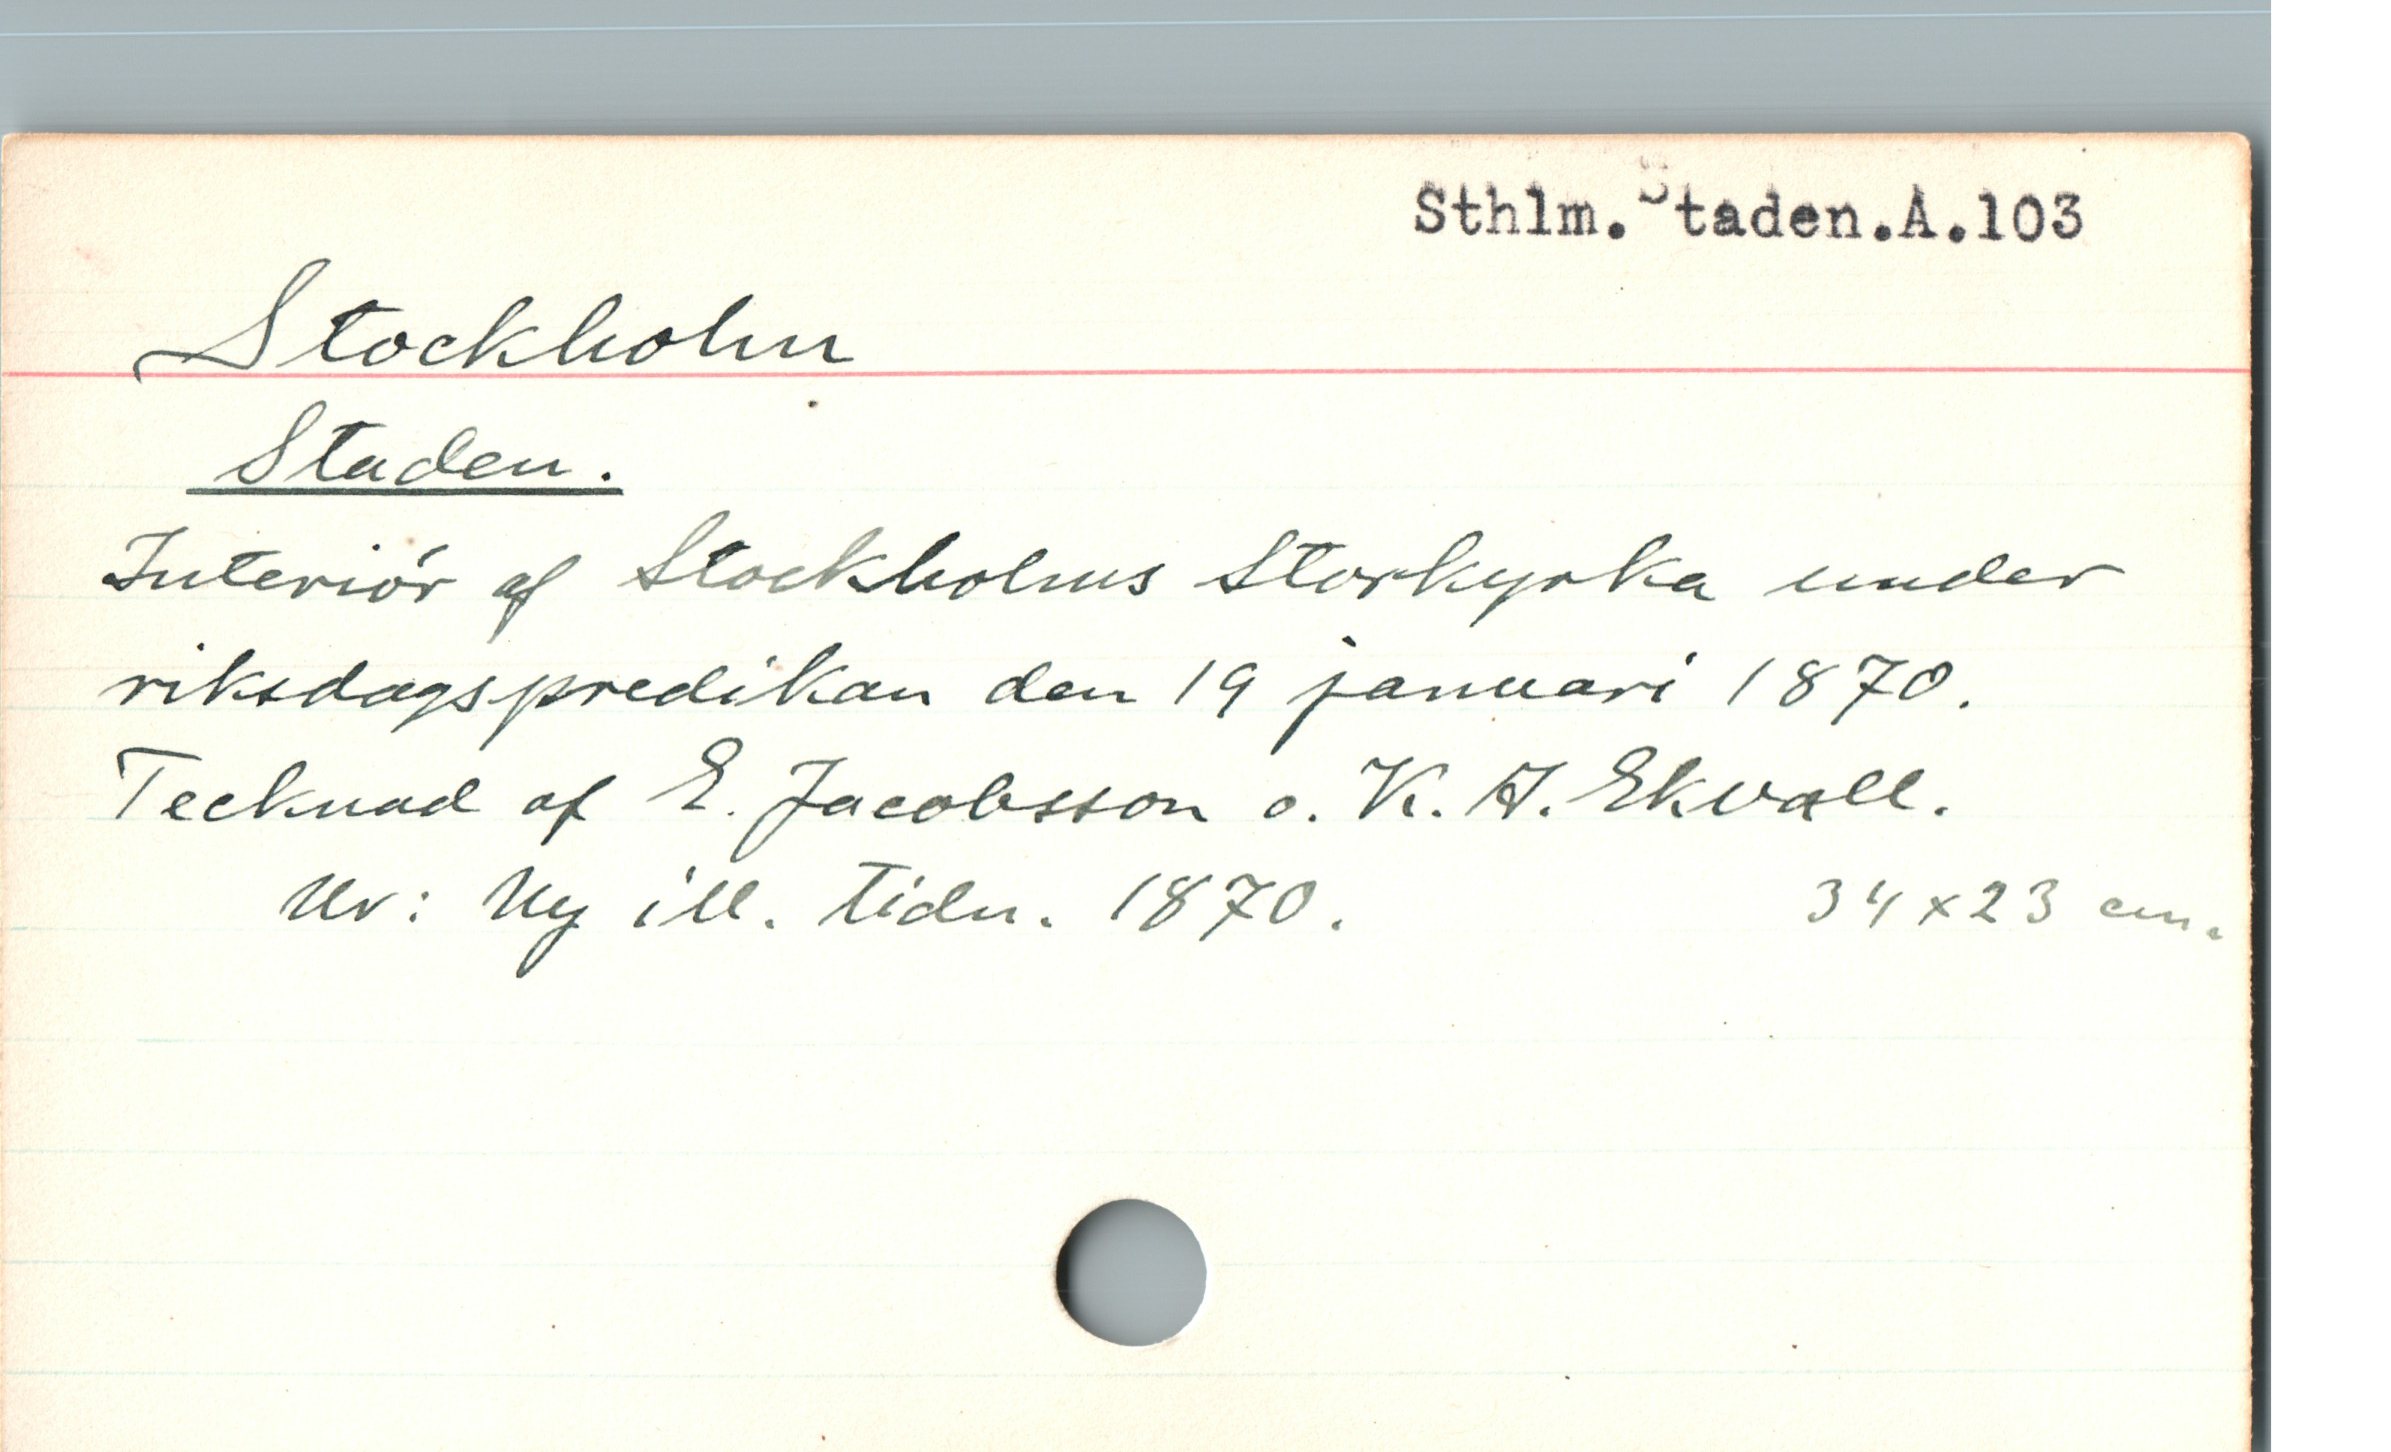 Sthlm.Staden.A.103
Stockholm
Staden.
Interiör af Stockholms Storkyrka under
riksdagspredikan den 19 januari 1870.
Tecknad af E. Jacobsson o. K. A. Ekvall.
Ur: Ny ill. tidn. 1870. 34 x 23 cm.